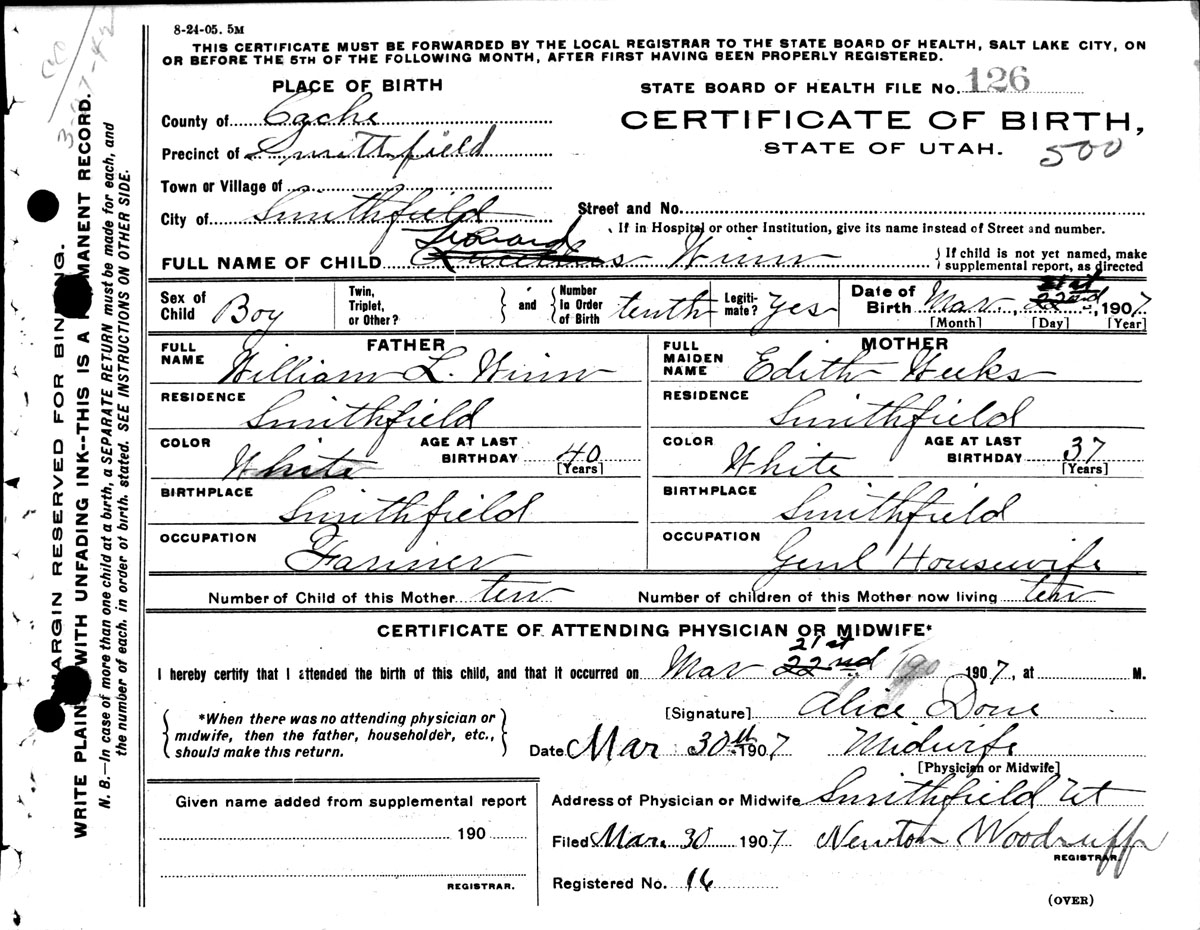 8-24-05. 5M
THIS CERTIFICATE MUST BE FORWARDED BY THE LOCAL REGISTRAR TO THE STATE BOARD OF HEALTH, SALT LAKE CITY, ON
OR BEFORE THE 5TH OF THE FOLLOWING MONTH, AFTER FIRST HAVING BEEN PROPERLY REGISTERED.
PLACE OF BIRTH
STATE BOARD OF HEALTH FILE No. 126
County of Cache
CERTIFICATE OF BIRTH,
Precinct of Smithfield
STATE OF UTAH. 500
Town or Village of
City of Smithfield
Street and No.
If in Hospital or other Institution, give its name instead of Street and number.
Leonard
FULL NAME OF CHILD Winn
If child is not yet named, make
supplemental report, as directed
Sex of Child Boy
Twin, Triplet, or Other?
and
Number in Order of Birth tenth
Legiti-mate? Yes
21st
Date of Birth Mar 22nd, 1907
[Month] [Day] [Year]
FATHER
FULL NAME William L. Winn
RESIDENCE Smithfield
COLOR White
AGE AT LAST BIRTHDAY 40
[Years]
BIRTHPLACE Smithfield
OCCUPATION Farmer
MOTHER
FULL MAIDEN NAME Edith Weeks
RESIDENCE Smithfield
COLOR White
AGE AT LAST BIRTHDAY 37
[Years]
BIRTHPLACE Smithfield
OCCUPATION Genl Housewife
Number of Child of this Mother ten
Number of children of this Mother now living ten
CERTIFICATE OF ATTENDING PHYSICIAN OR MIDWIFE*
21st
I hereby certify that I attended the birth of this child, and that it occurred on Mar 22nd 1907, at M.
*When there was no attending physician or
midwife, then the father, householder, etc.,
should make this return.
[Signature] Alice Done
Date Mar 30th 1907 Midwife
[Physician or Midwife]
Given name added from supplemental report
190
REGISTRAR.
Address of Physician or Midwife Smithfield Ut
Filed Mar. 30 1907 Newton Woodruff
REGISTRAR.
Registered No. 16
(OVER)
MARGIN RESERVED FOR BINDING.
WRITE PLAINLY WITH UNFADING INK--THIS IS A PERMANENT RECORD.
N. B.—In case of more than one child at a birth, a SEPARATE RETURN must be made for each, and
the number of each, in order of birth, stated. SEE INSTRUCTIONS ON OTHER SIDE.